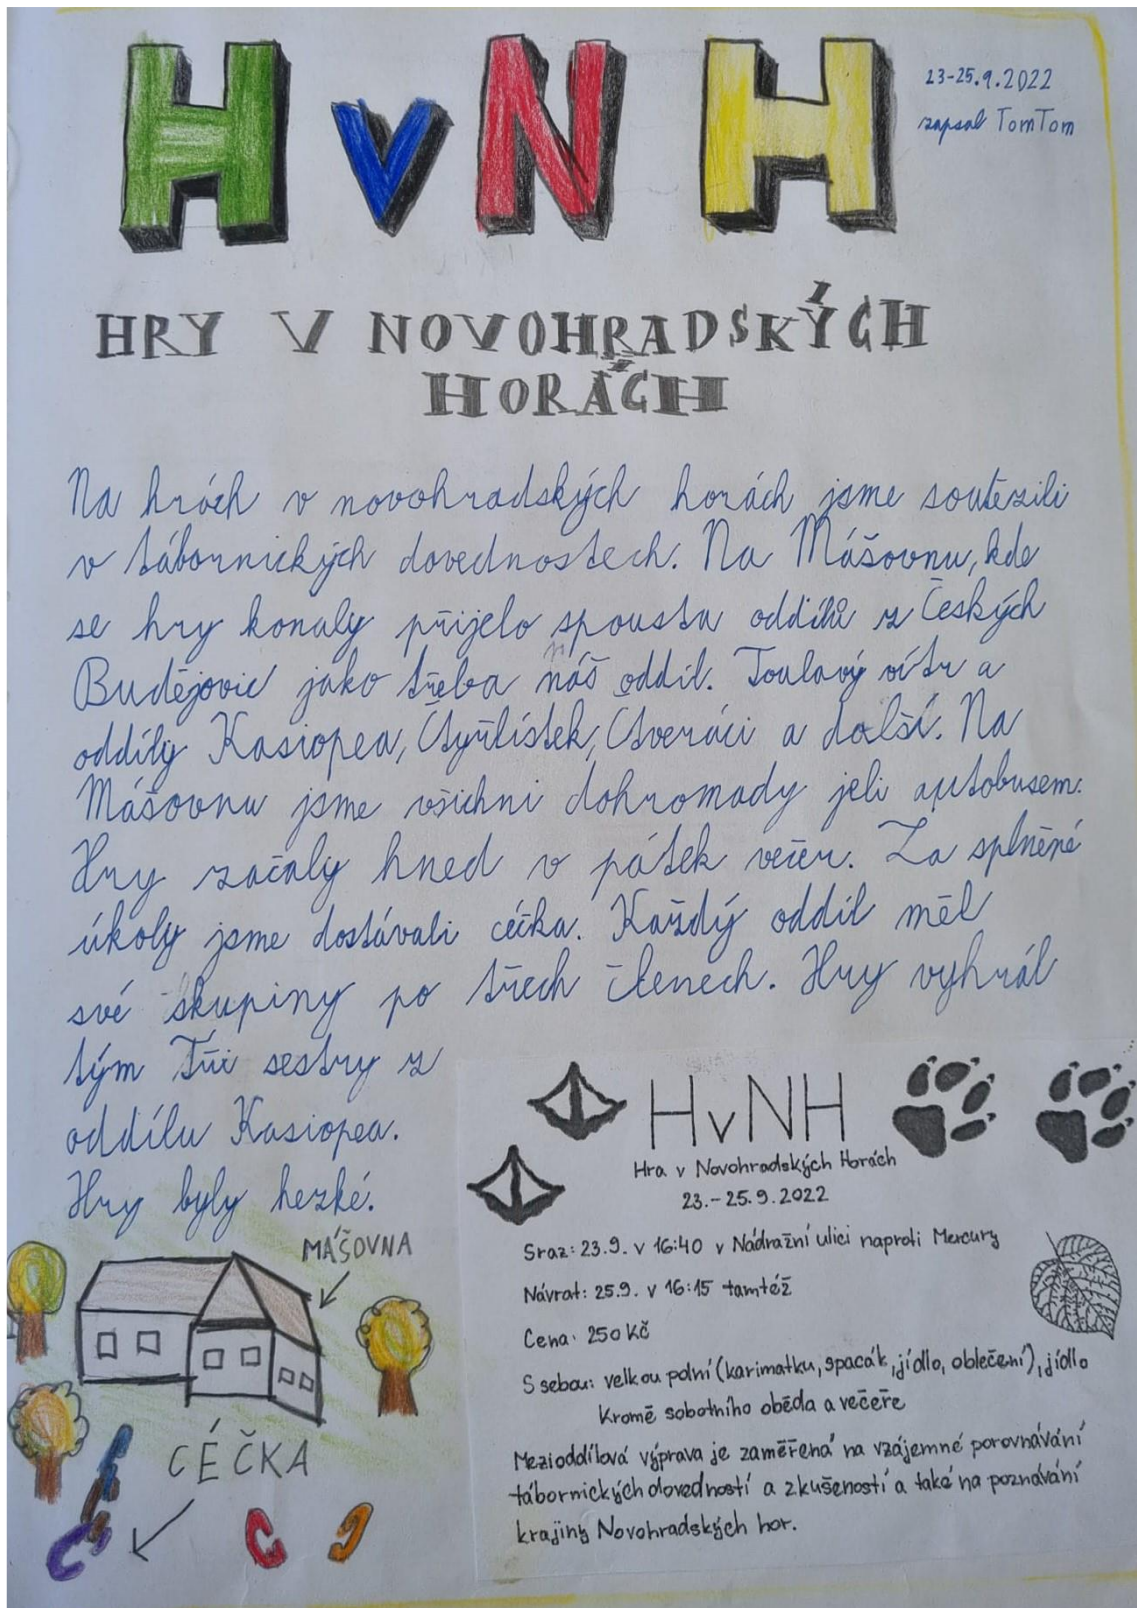 HvNH
23-25.9.2022
zapsal TomTom
HRY V NOVOHRADSKÝCH
HORÁCH
Na hrách v novohradských horách jsme soutěžili
v tábornických dovednostech. Na Mášovnu, kde
se hry konaly přijelo spousta oddílů z Českých
Budějovic jako třeba náš oddíl. Toulavý vítr a
oddíly Kasiopea, Čtyřlístek, Čtveráci a další. Na
Mášovnu jsme všichni dohromady jeli autobusem.
Hry začaly hned v pátek večer. Za splněné
úkoly jsme dostávali céčka. Každý oddíl měl
své skupiny po třech členech. Hry vyhrál
tým Tři sestry z
oddílu Kasiopea.
Hry byly hezké.
MÁŠOVNA
CÉČKA
HvNH
Hra v Novohradských Horách
23.-25.9.2022
Sraz: 23.9. v 16:40 v Nádražní ulici naproti Mercury
Návrat: 25.9. v 16:15 tamtéž
Cena: 250 Kč
S sebou: velkou polní (karimatku, spacák, jídlo, oblečení), jídlo
Kromě sobotního oběda a večeře
Mezioddílová výprava je zaměřená na vzájemné porovnávání
tábornických dovedností a zkušeností a také na poznávání
krajiny Novohradských hor.